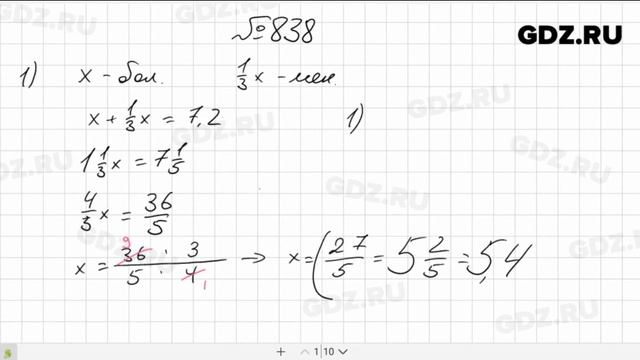 №838
GDZ.RU
1) x - бол. 1/3 x - мен.
x + 1/3 x = 7,2 1)
1 1/3 x = 7 1/5
4/3 x = 36/5
x = 36 · 3 / 5 · 4 → x = ( 27/5 = 5 2/5 = 5,4
9
1
GDZ.RU
GDZ.RU
GDZ.RU
GDZ.RU
GDZ.RU
GDZ.RU
GDZ.RU
+ 1 10